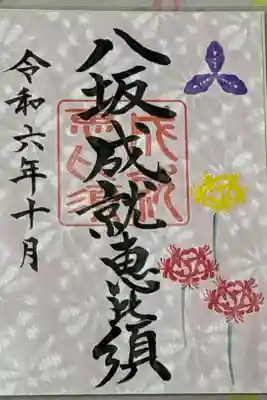 八坂成就恵比須
令和六年十月